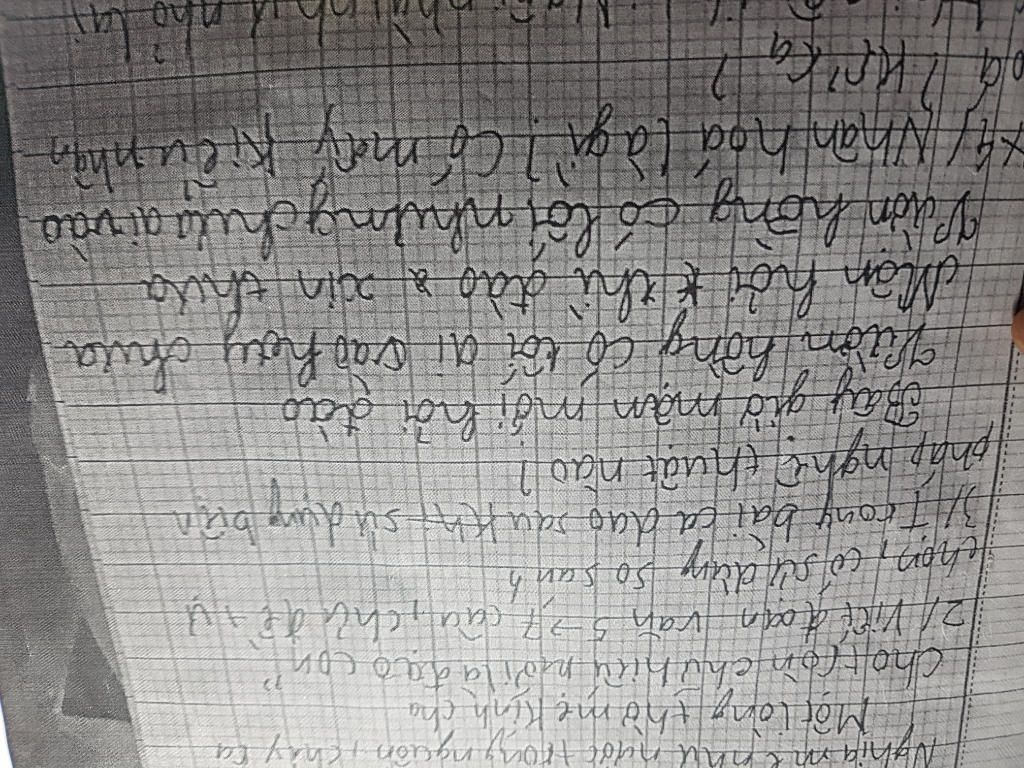 Nghĩa mẹ như nước trong nguồn chảy ra
Một lòng thờ mẹ kính cha
Cho tròn chữ hiếu mới là đạo con"
2/ Viết đoạn văn 5→7 câu, chủ đề tự
chọn, có sử dụng so sánh
3/ Trong bài ca dao sau KH sử dụng biện
pháp nghệ thuật nào?
Bây giờ mận mới hỏi đào
Vườn hồng có lối ai vào hay chưa
Mận hỏi thì đào xin thưa
Vườn hồng có lối nhưng chưa ai vào
4/ Nhân hóa là gì? Có mấy kiểu nhân